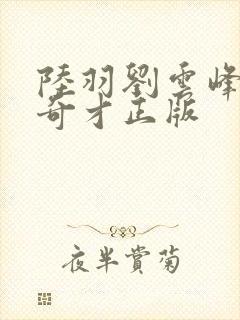 陸羽劉雲峰
奇才正版
夜半賞菊